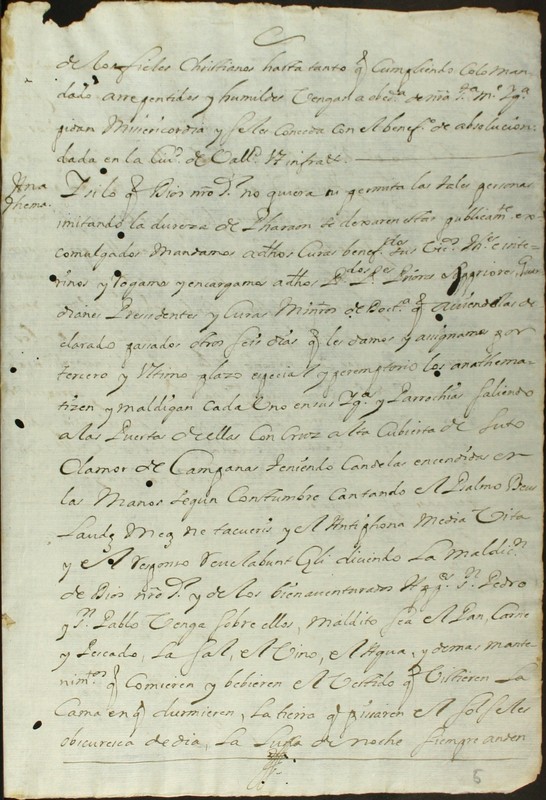 de los fieles Christianos hasta tanto q̃ Cumpliendo Colo man
dado arrepentidos y humildes Vengan a obed.a de nr̃a S.ta M.e Yg.a
pidan Misericordia y se les Conceda Con el benef.o de absolucion
dada en la Ciu.d de Vall.d
Ana
thema.
Y si lo q̃ Dios nr̃o S.r no quiera ni permita las tales personas
imitando la dureza de Pharaon se dexaren estar publicam.te ex
comulgados Mandamos a dhos Curas benef.dos sus e inte
rinos y Rogamos y encargamos a dhos P.dos P.es Priores Superiores Guar
dianes Presidentes y Curas Minr̃os de Doct.a q̃ aviendolas de
clarado passados otros seis dias q̃ les damos y assignamos por
tercero y Vltimo plazo especial y peremptorio los anathema
tizen y maldigan Cada Vno en sus Yg.as y Parrochias Saliendo
a las Puertas de ellas Con Cruz alta Cubierta de luto
Clamor de Campanas teniendo Candelas encendidas en
las Manos segun Costumbre Cantando el Psalmo Deus
Laudẽ Meã ne tacueris y el Antiphona Media Vita
y el Responso Revelabunt Çeli diciendo La Maldic.n
de Dios nr̃o S.r y de los bienaventurados App.es S.n Pedro
y S.n Pablo Venga sobre ellos, maldito sea el Pan, Carne
y Pescado, La Sal, el Vino, el Agua, y demas mante
nim.tos q̃ Comieren y bebieren el Vestido q̃ Vistieren La
Cama en q̃ durmieren, La tierra q̃ pisaren el sol se les
obscuresca de dia, La Luna de noche siempre anden
5